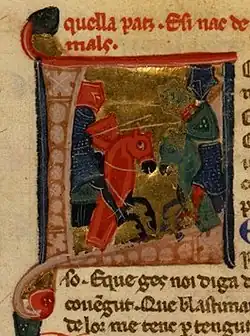 quella patz. E si nac de
mals.
so. Eque ges noi diga d
covēgut. Que blastima
de lor me tene p tenga